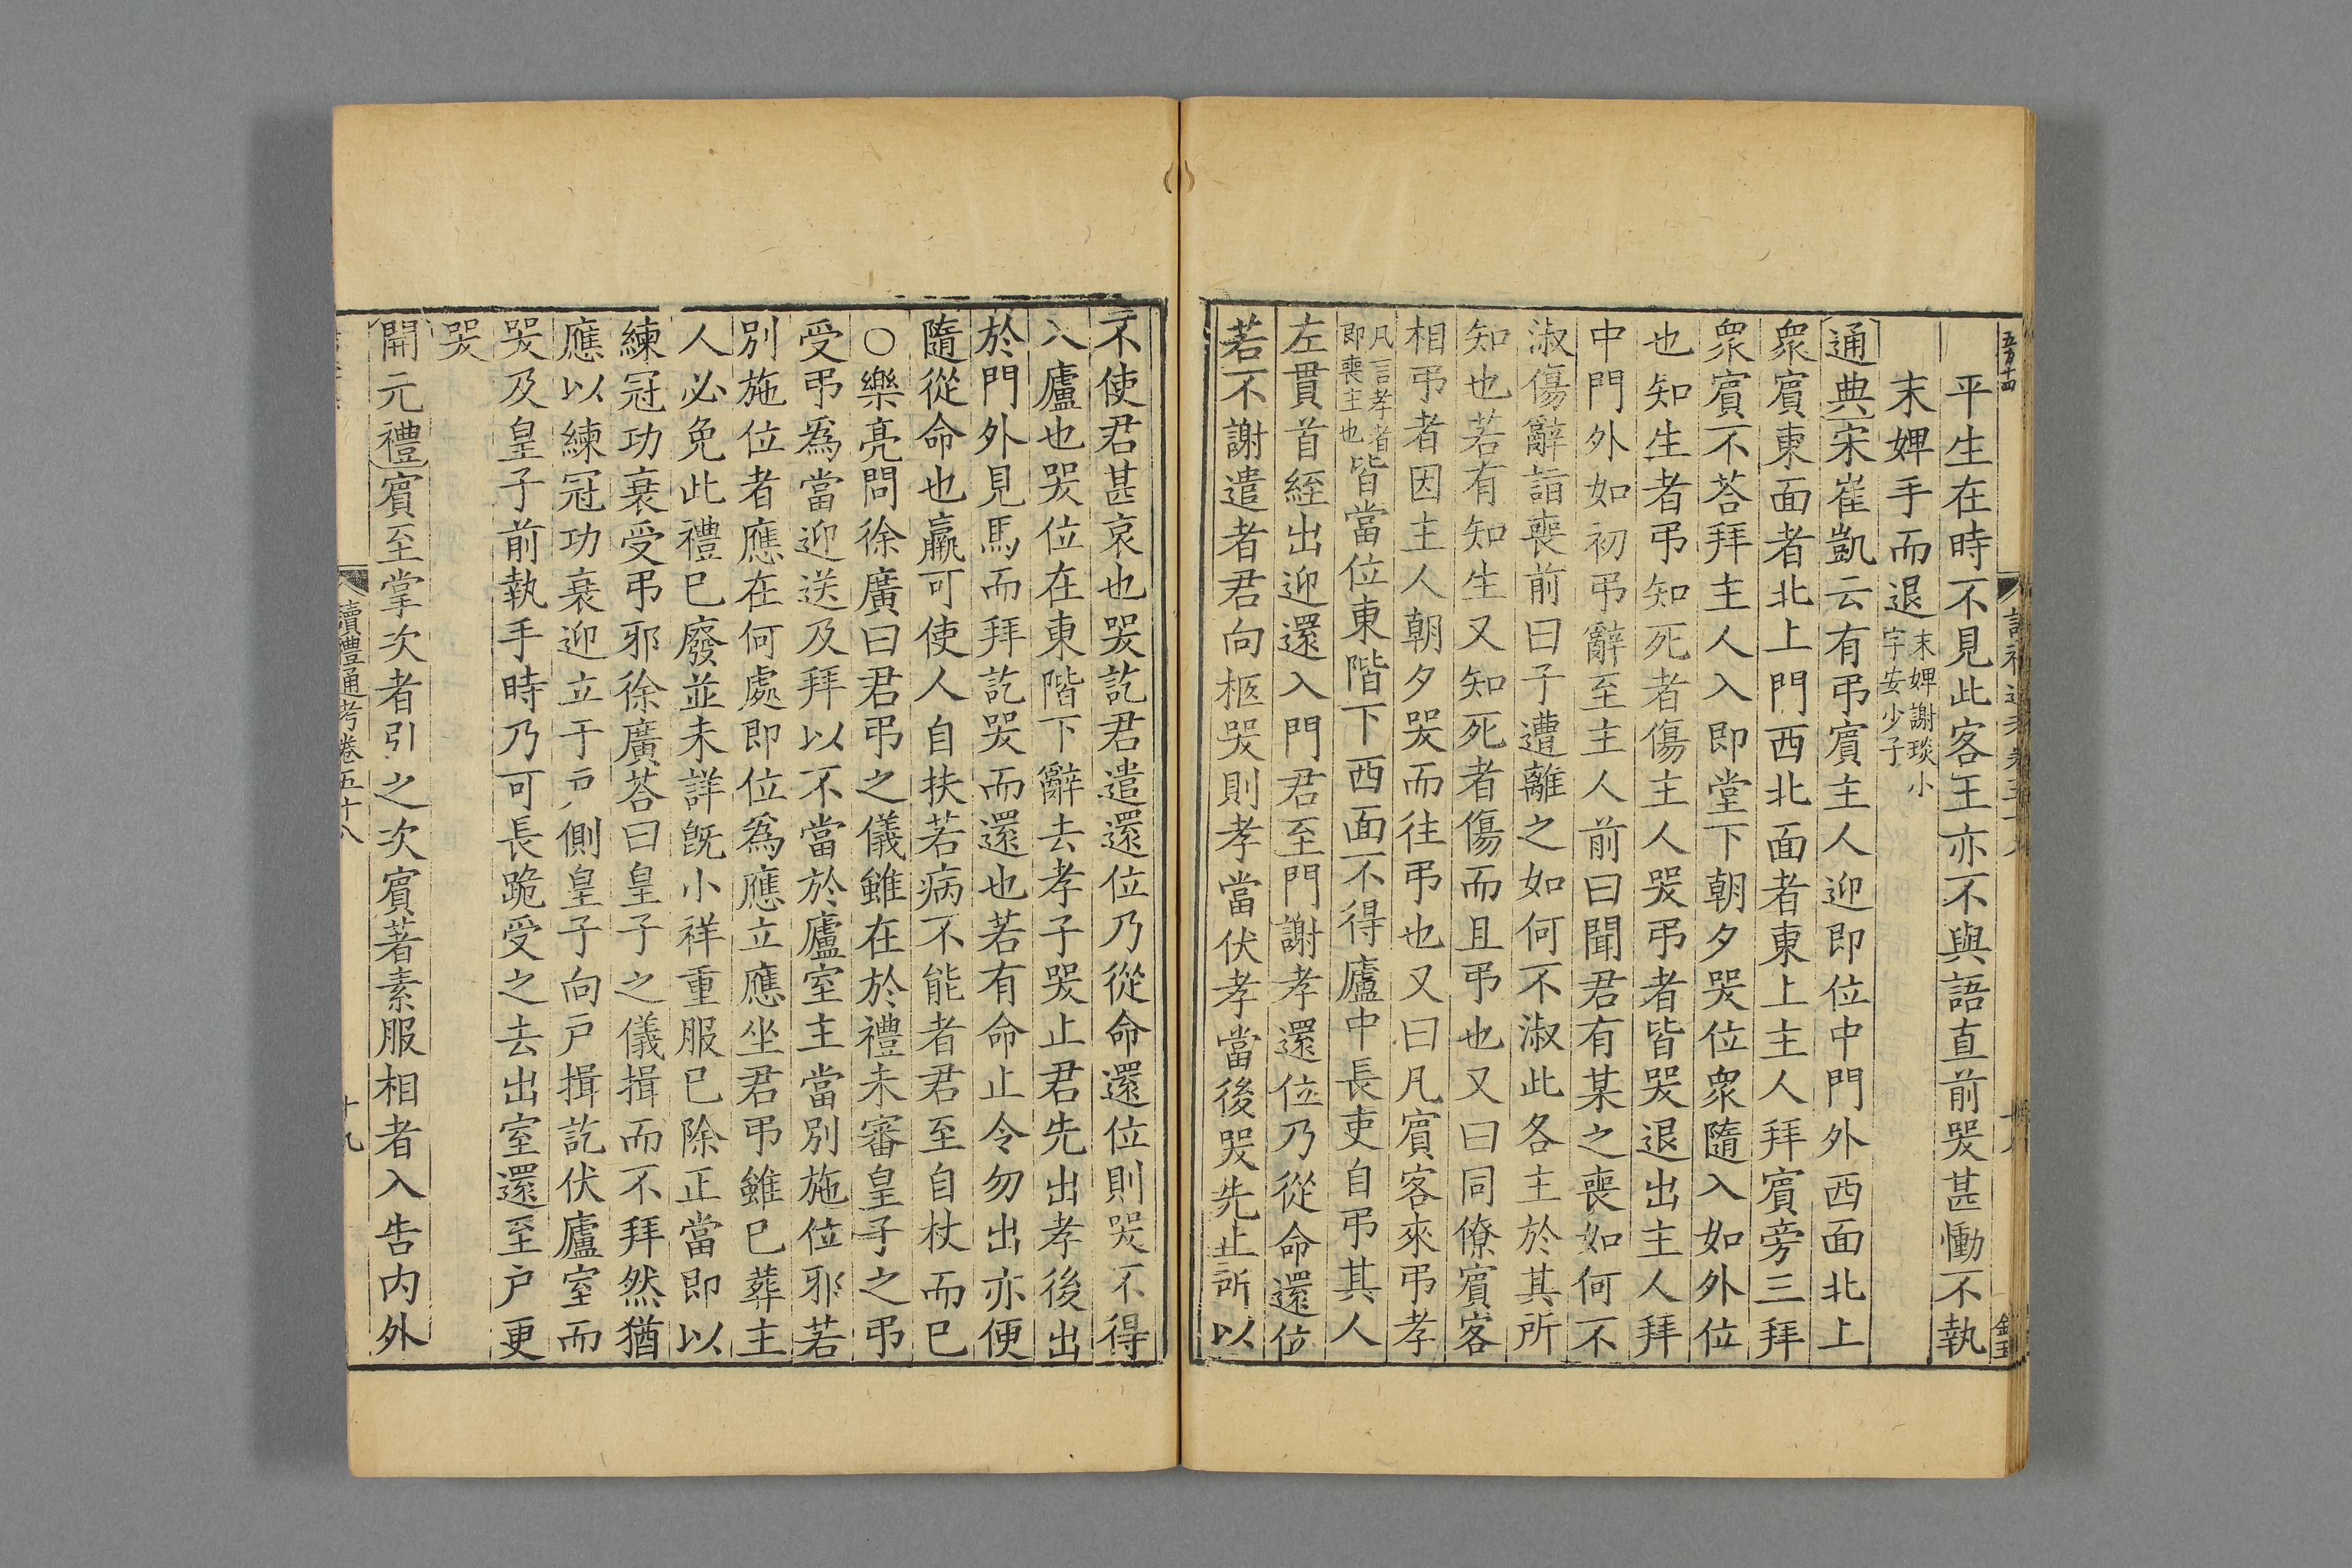 平生在時不見此客王亦不與語直前哭甚慟不執
末婢手而退末婢謝琰小字安少子
通典宋崔凱云有弔賓主人迎即位中門外西面北上
衆賓東面者北上門西北面者東上主人拜賓旁三拜
衆賓不荅拜主人入即堂下朝夕哭位衆隨入如外位
也知生者弔知死者傷主人哭弔者皆哭退出主人拜
中門外如初弔辭至主人前曰聞君有某之喪如何不
淑傷辭詣喪前曰子遭離之如何不淑此各主於其所
知也若有知生又知死者傷而且弔也又曰同僚賓客
相弔者因主人朝夕哭而往弔也又曰凡賓客來弔孝
凡言孝者即喪主也皆當位東階下西面不得廬中長吏自弔其人
左貫首絰出迎還入門君至門謝孝還位乃從命還位
若不謝遣者君向柩哭則孝當伏孝當後哭先止所以
不使君甚哀也哭訖君遣還位乃從命還位則哭不得
入廬也哭位在東階下辭去孝子哭止君先出孝後出
於門外見馬而拜訖哭而還也若有命止令勿出亦便
隨從命也羸可使人自扶若病不能者君至自杖而已
○樂亮問徐廣曰君弔之儀雖在於禮未審皇子之弔
受弔爲當迎送及拜以不當於廬室主當別施位邪若
別施位者應在何處即位爲應立應坐君弔雖已葬主
人必免此禮已廢並未詳旣小祥重服已除正當即以
練冠功衰受弔邪徐廣荅曰皇子之儀揖而不拜然猶
應以練冠功衰迎立于戸側皇子向戸揖訖伏廬室而
哭及皇子前執手時乃可長跪受之去出室還至户更
哭
開元禮賓至掌次者引之次賓著素服相者入告内外
讀禮通考卷五十八
十九